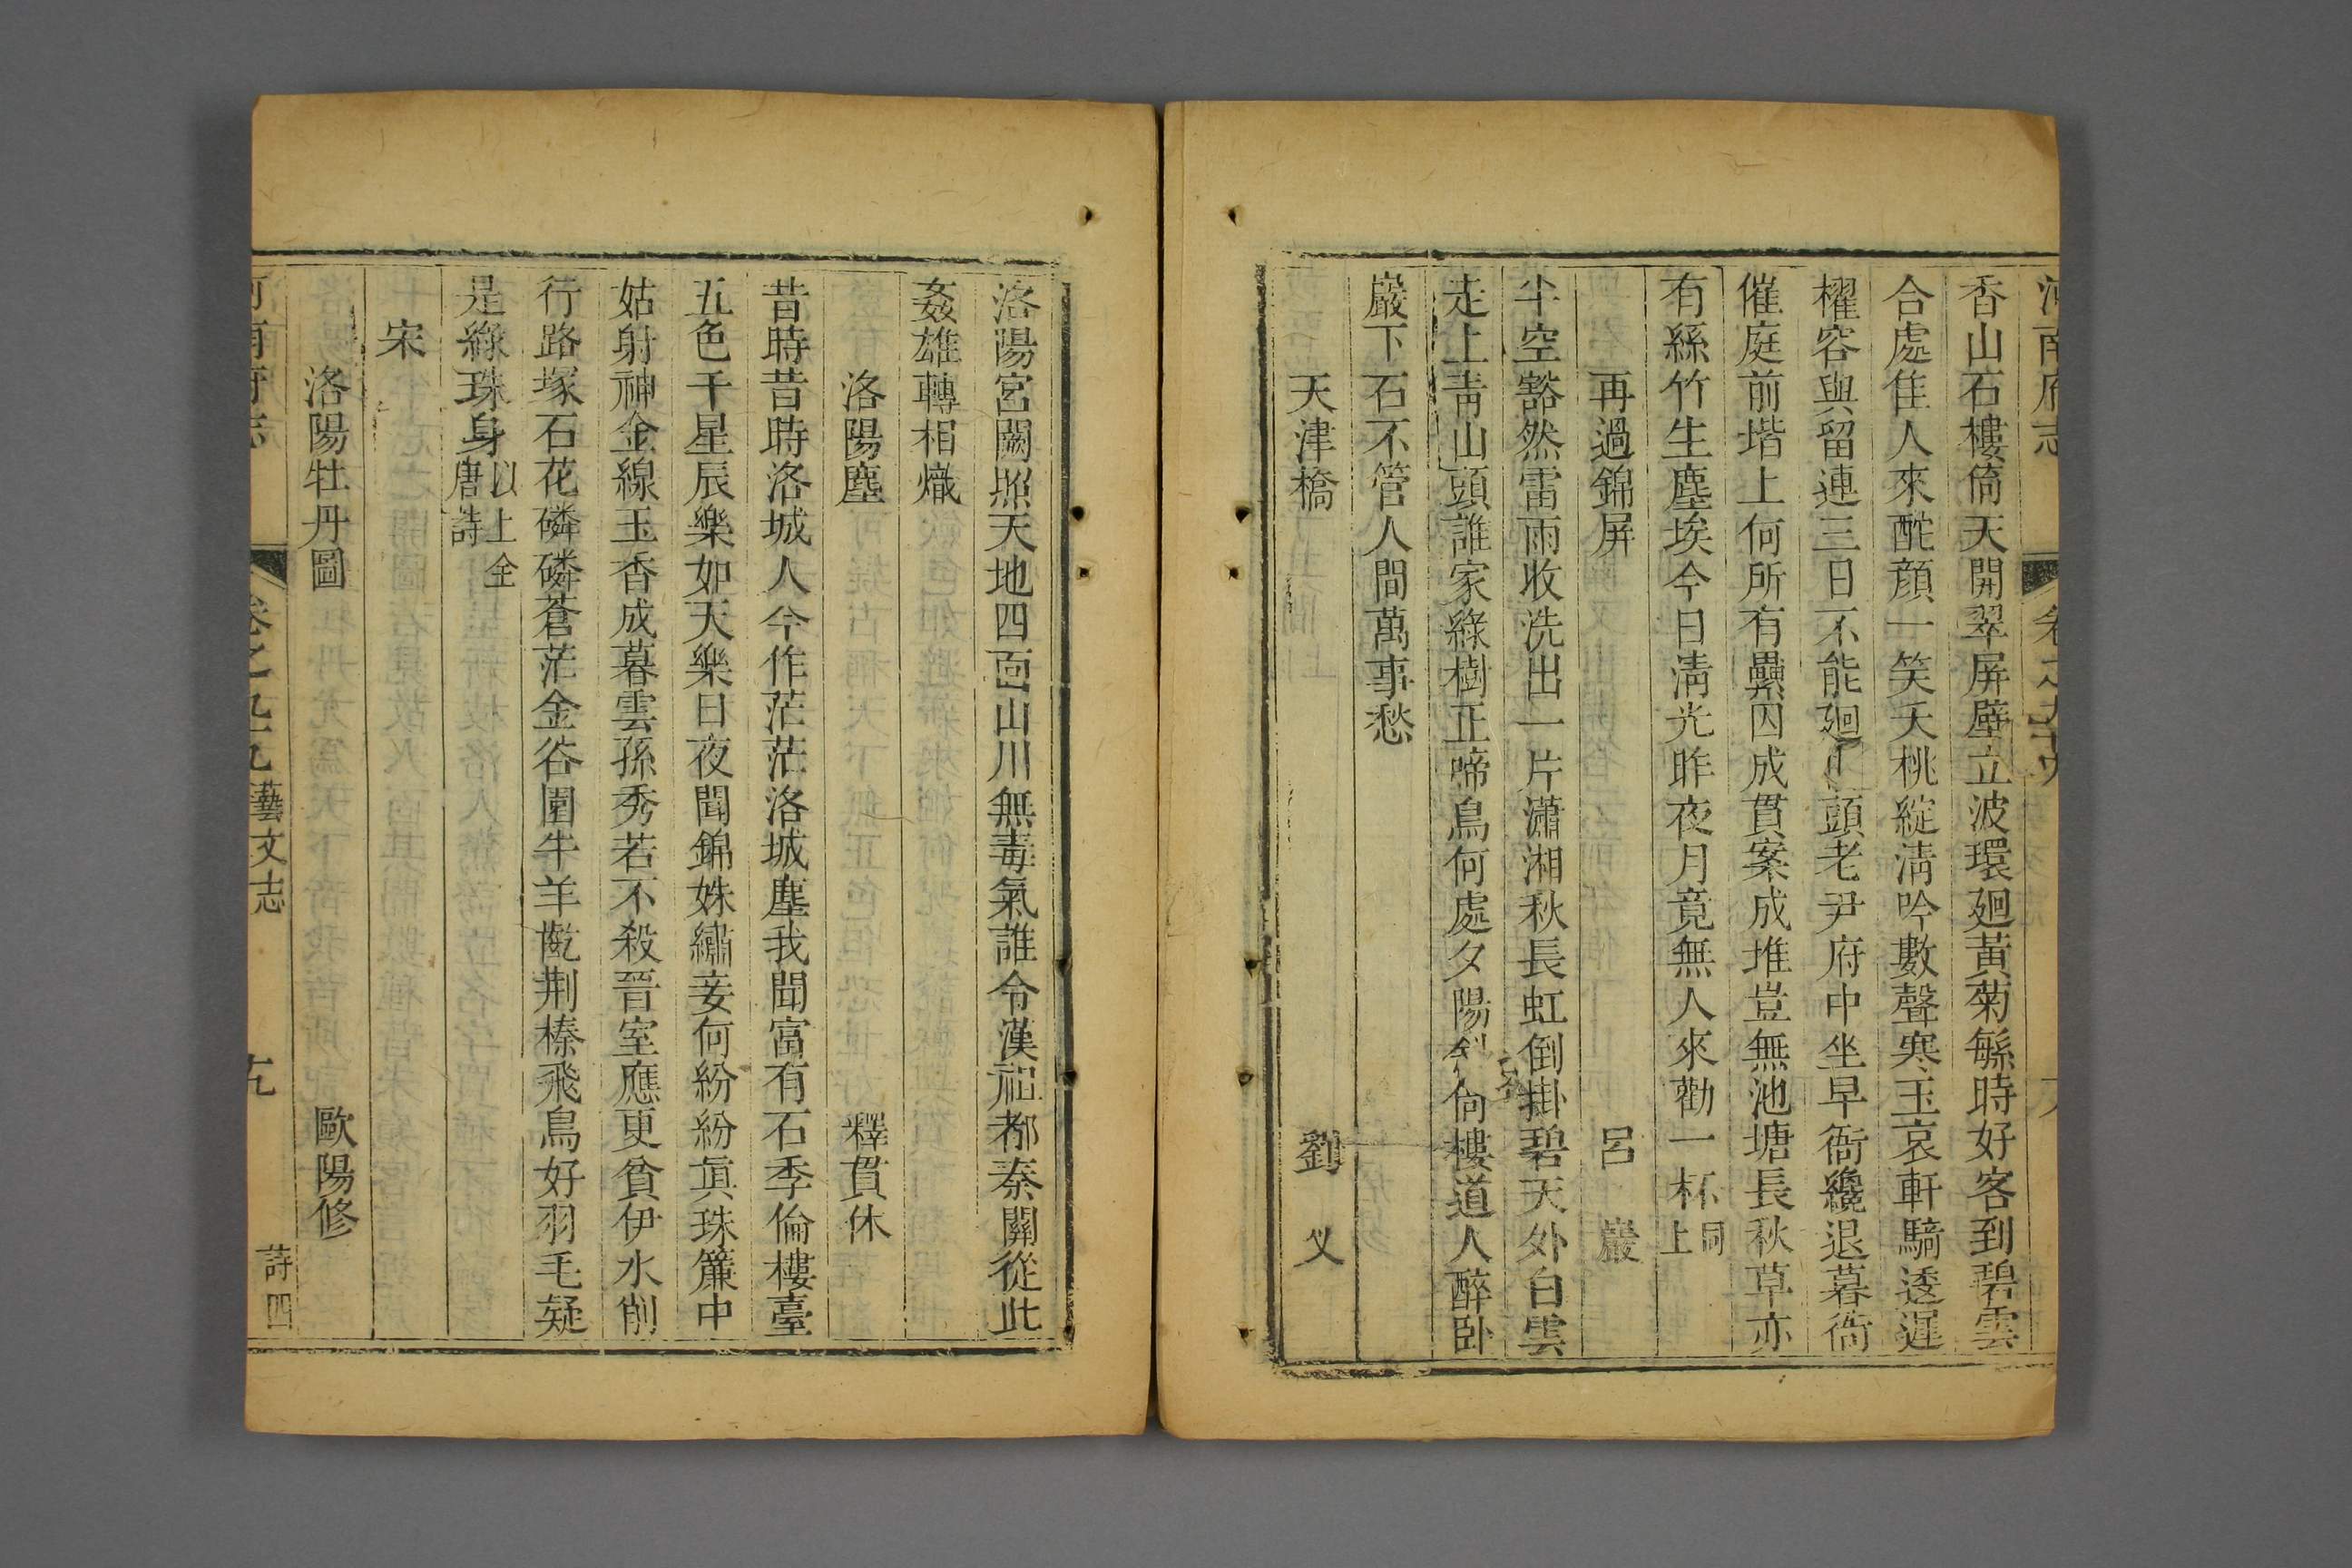 河南府志 卷之九十九
香山石樓倚天開翠屏壁立波環廻黃菊繇時好客到碧雲
合處佳人來酡顏一笑夭桃綻淸吟數聲寒玉哀軒騎透遲
櫂容與留連三日不能廻 頭老尹府中坐早衙纔退暮衙
催庭前堦上何所有纍囚成貫案成堆豈無池塘長秋草亦
有絲竹生塵埃今日淸光昨夜月竟無人來勸一杯同上
再過錦屏 呂巖
半空豁然雷雨收洗出一片瀟湘秋長虹倒掛碧天外白雲
走上靑山頭誰家綠樹正啼鳥何處夕陽斜倚樓道人醉卧
巖下石不管人間萬事愁
天津橋 劉义
洛陽宮闕照天地四面山川無毒氣誰令漢祖都秦關從此
姦雄轉相熾
洛陽塵 釋貫休
昔時昔時洛城人今作茫茫洛城塵我聞富有石季倫樓臺
五色干星辰樂如天樂日夜聞錦姝繡妾何紛紛眞珠簾中
姑射神金線玉香成暮雲孫秀若不殺晉室應更貧伊水削
行路塚石花磷磷蒼茫金谷園牛羊齕荆榛飛鳥好羽毛疑
是綠珠身以上全唐詩
宋
洛陽牡丹圖 歐陽修
河南府志 卷之 九 藝文志 九 詩四